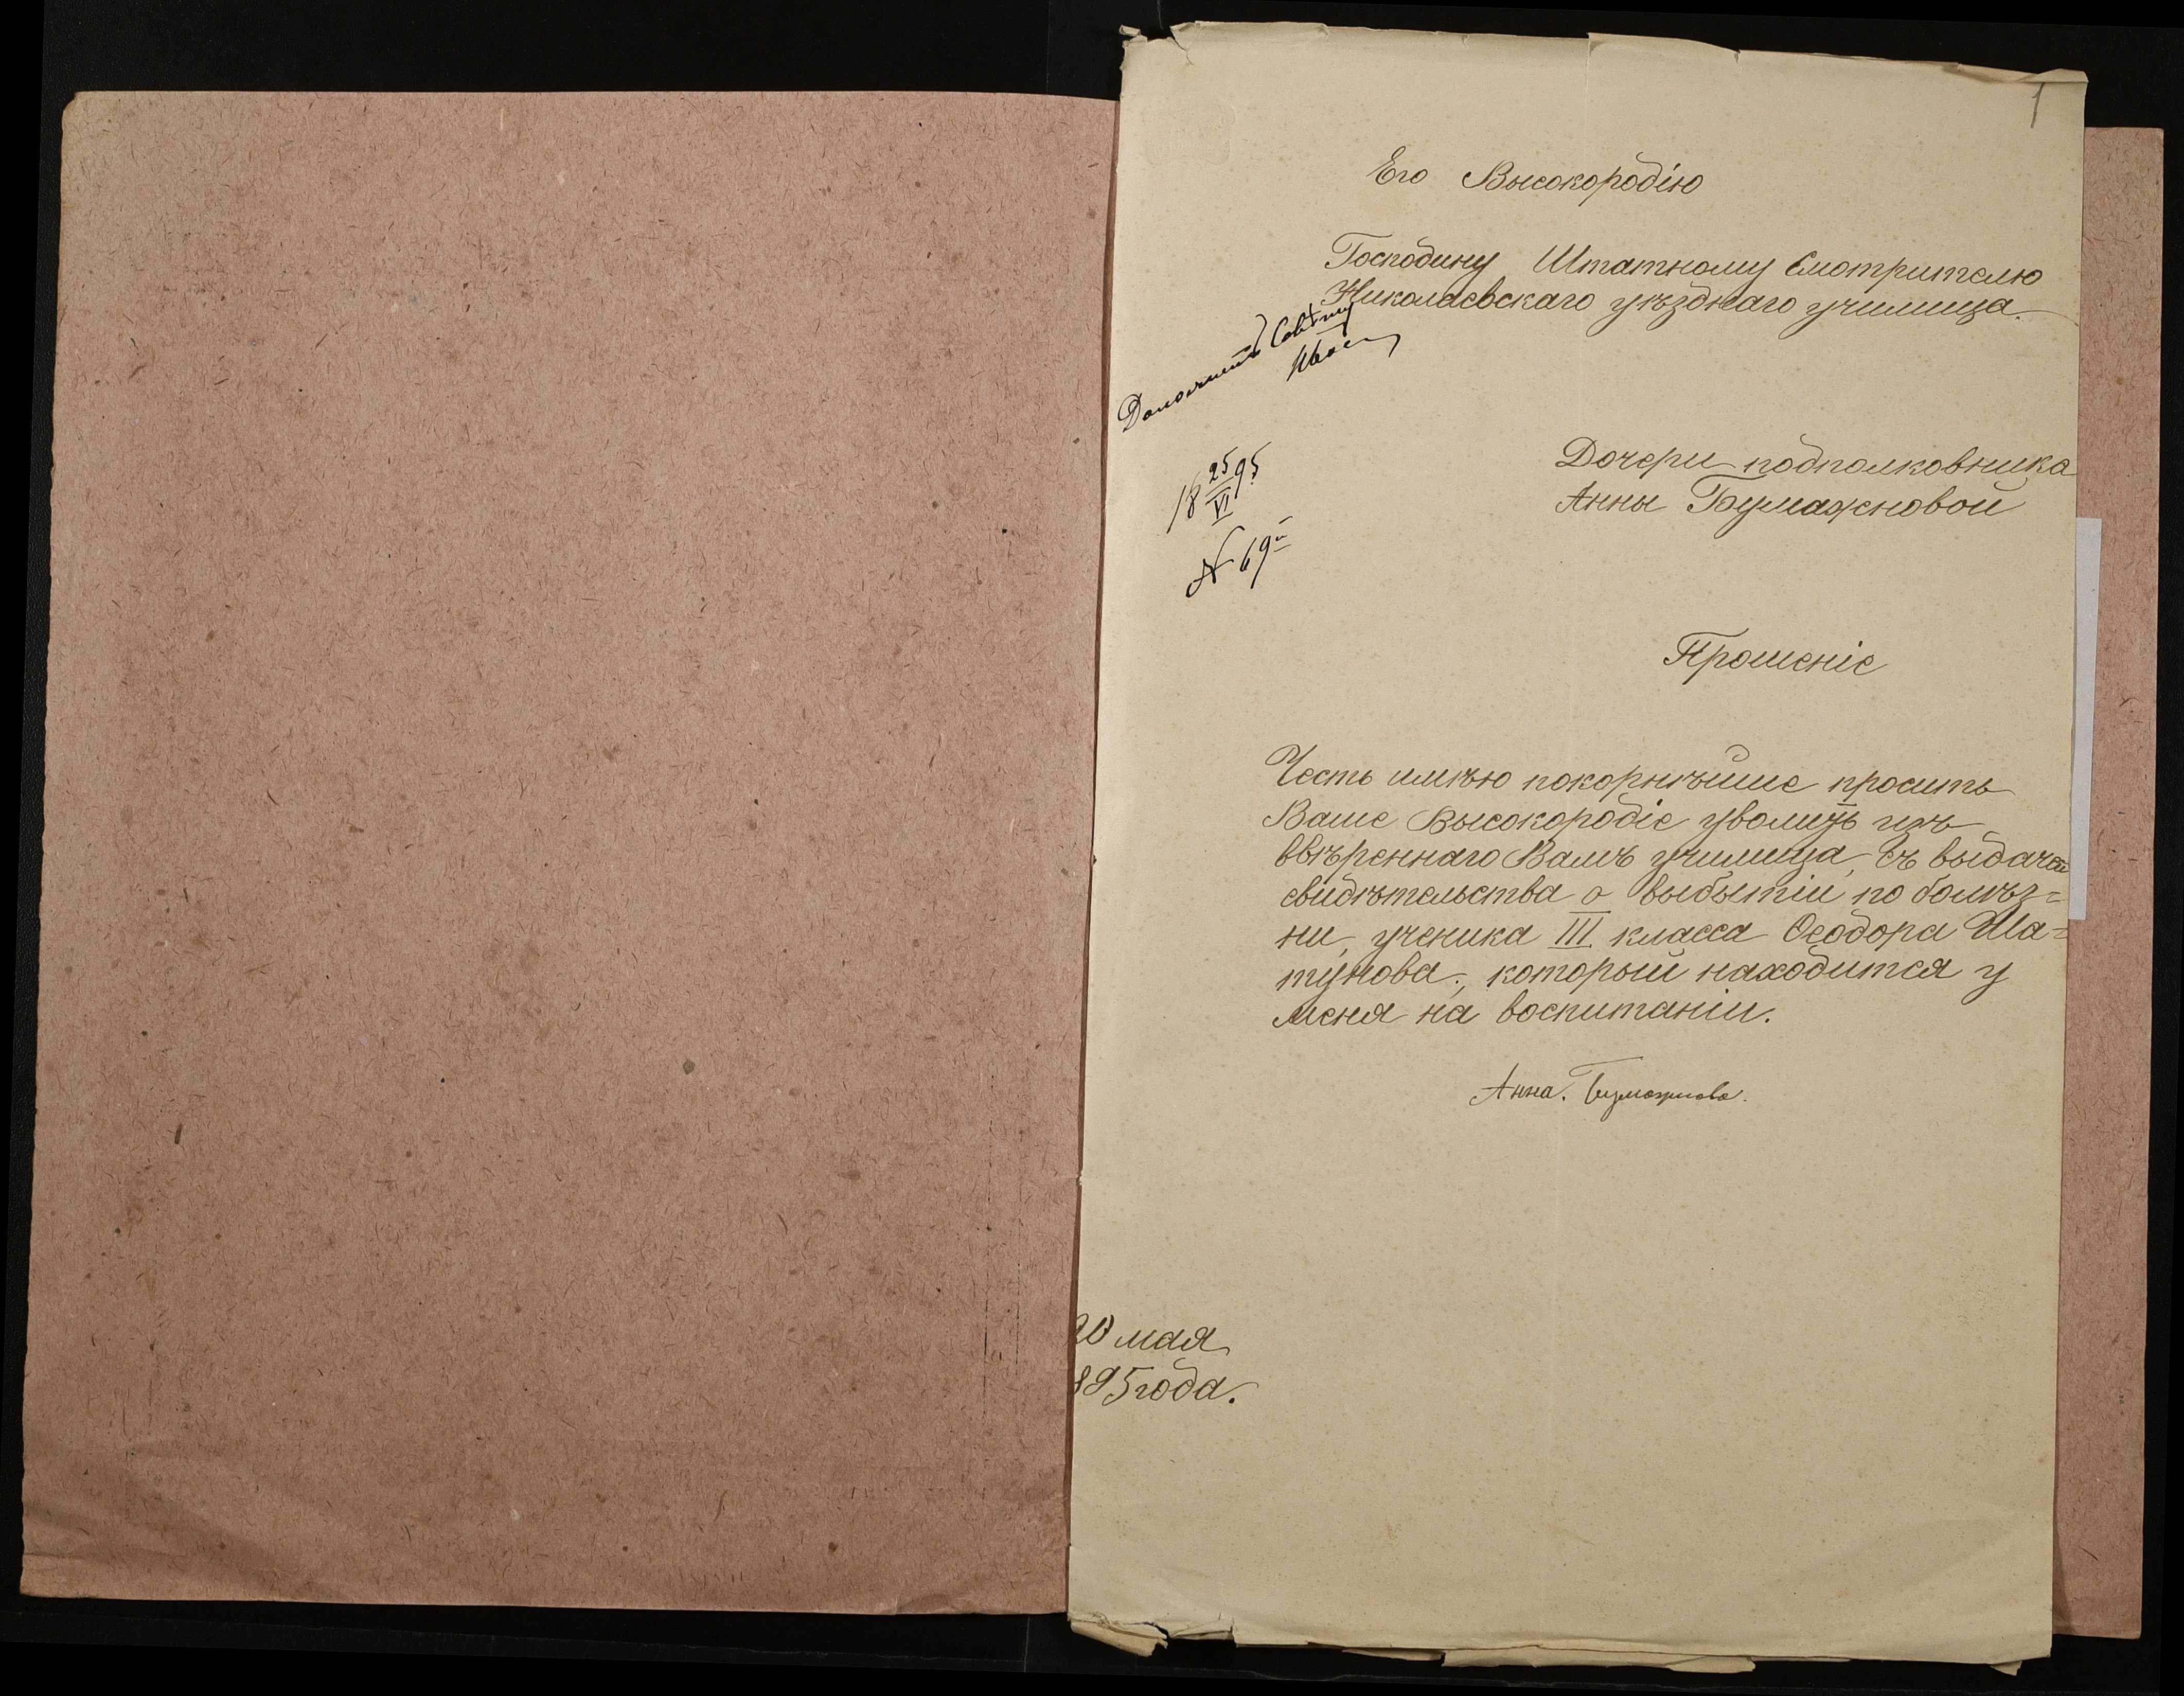 1
Его Высокородію
Господину Штатному Смотрителю
Николаевскаго уѣзднаго училища.
Доложить Совѣту
18 25/VI 95
№ 69й
Дочери подполковника
Анны Бумажновой
Прошеніе
Честь имѣю покорнѣйше просить
Ваше Высокородіе уволить изъ
ввѣреннаго Вамъ училища, съ выдачей
свидѣтельства о выбытіи по болѣз=
ни, ученика III класса Ѳеодора Ша=
тунова, который находится у
меня на воспитаніи.
Анна. Бумажнова.
20 мая
895 года.